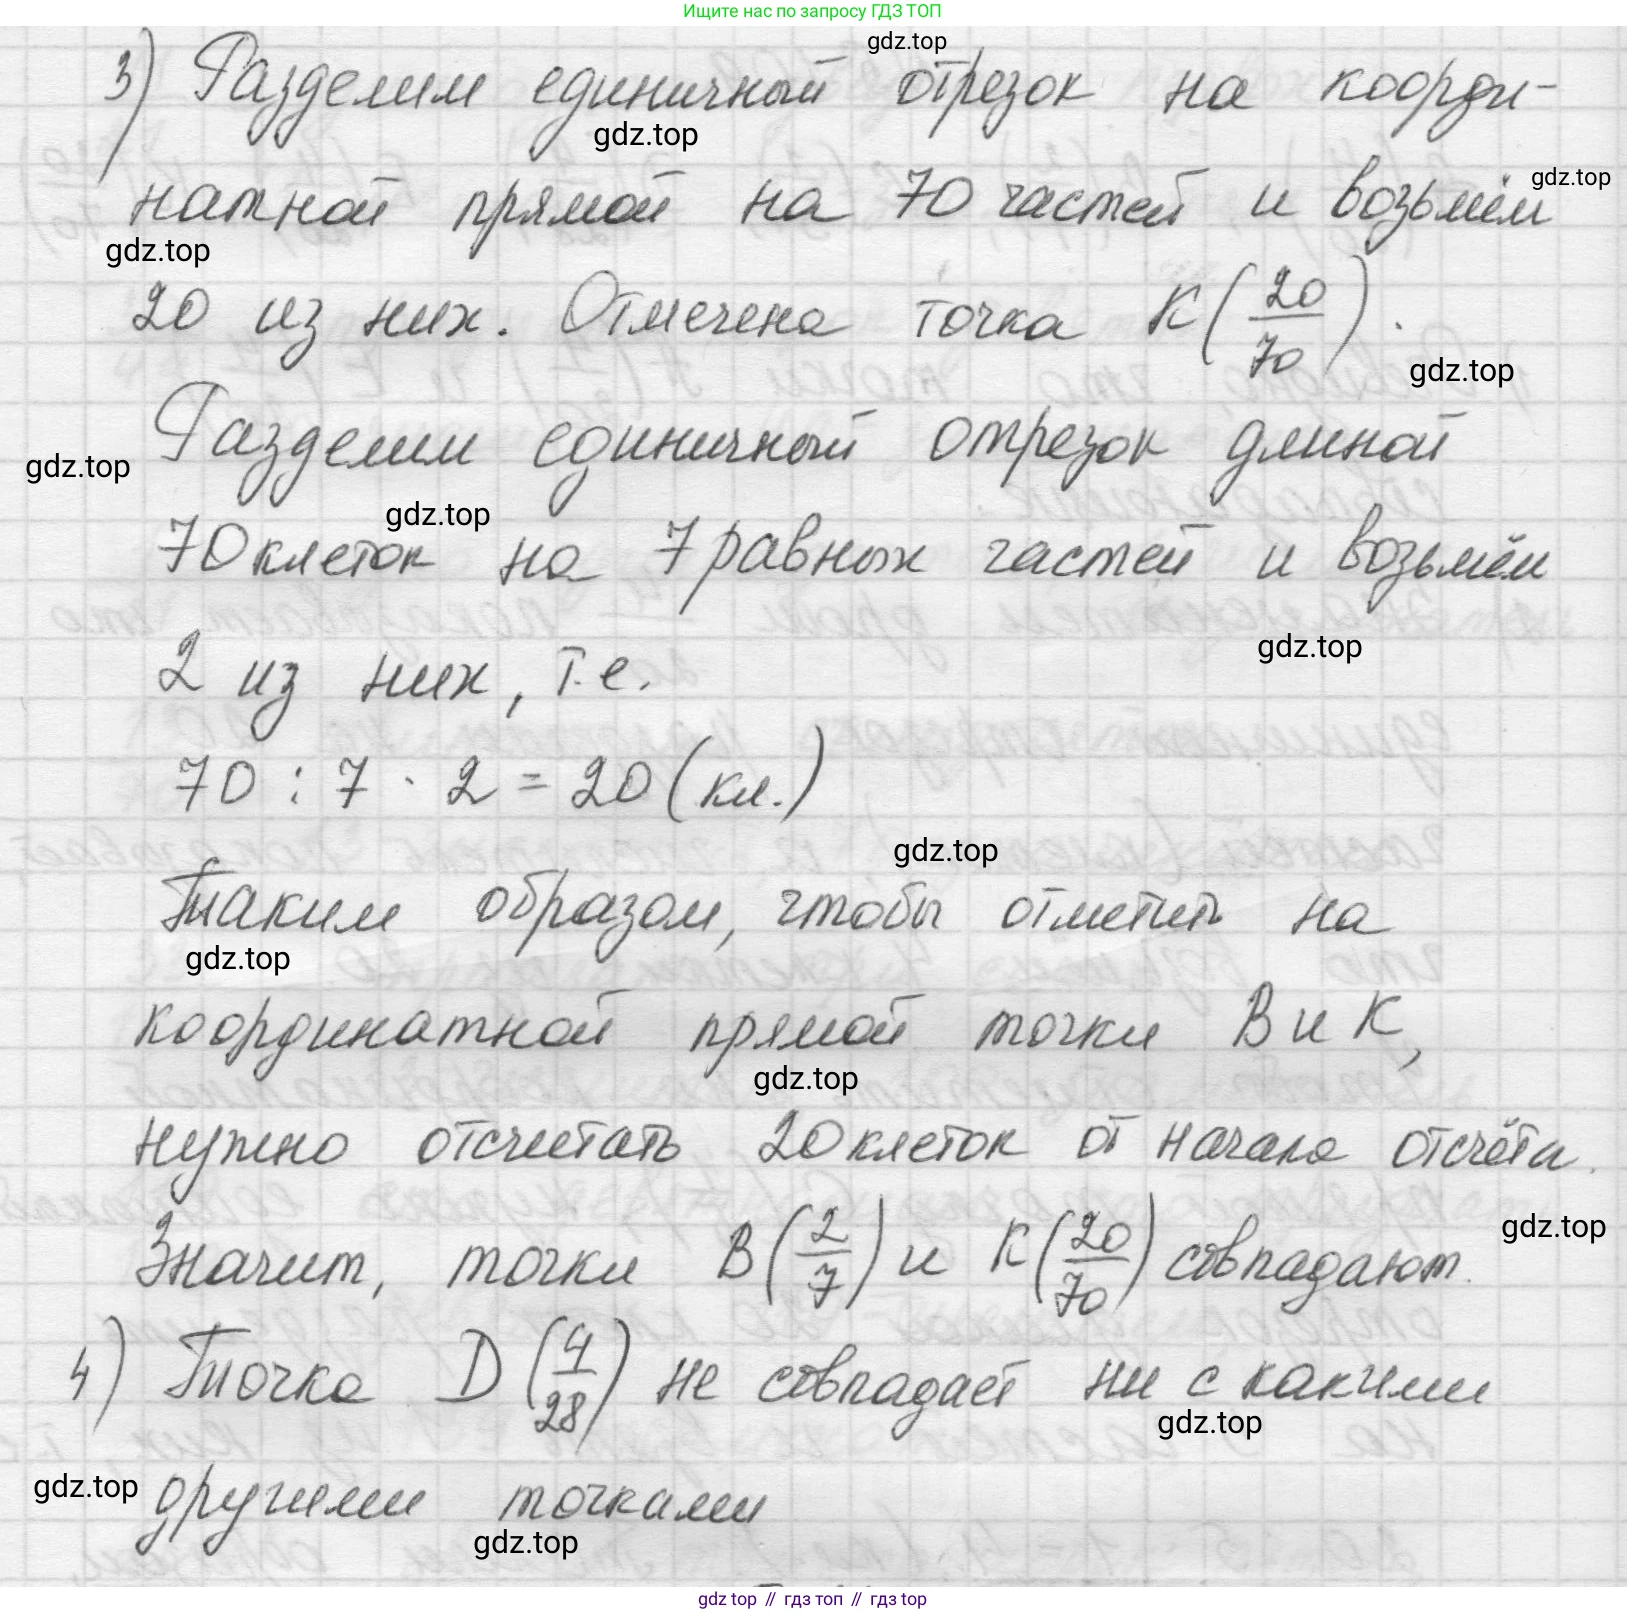 Ищите нас по запросу ГДЗ ТОП
gdz.top
3) Разделим единичный отрезок на коорди-
gdz.top
натной прямой на 70 частей и возьмём
gdz.top
gdz.top
20 из них. Отмечена точка K(20/70).
gdz.top
Разделим единичный отрезок длиной
gdz.top
gdz.top
70 клеток на 7 равных частей и возьмём
gdz.top
2 из них, т.е.
70 : 7 · 2 = 20 (кл.)
gdz.top
Таким образом, чтобы отметить на
gdz.top
координатной прямой точки B и K,
gdz.top
нужно отсчитать 20 клеток от начала отсчёта.
gdz.top
Значит, точки B(2/7) и K(20/70) совпадают.
4) Точка D(4/28) не совпадает ни с какими
gdz.top
gdz.top
другими точками
gdz.top
gdz top // гдз топ // гдз top